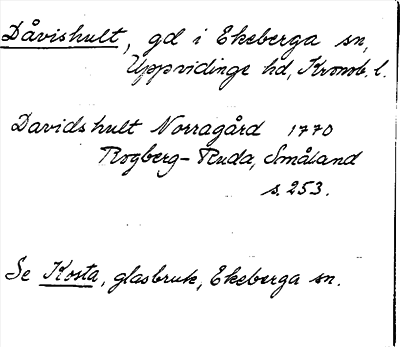 Dåvishult, gd i Ekeberga sn,
Uppvidinge hd, Kronob. l.
Davidshult Norragård 1770
Rogberg-Ruda, Småland
s. 253.
Se Kosta, glasbruk, Ekeberga sn.